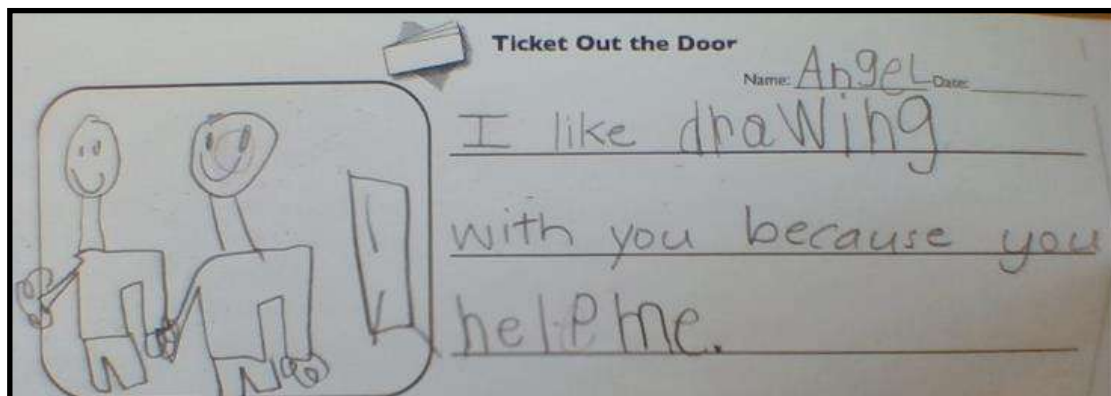 Ticket Out the Door
Name: Angel Date:
I like drawing
with you because you
help me.